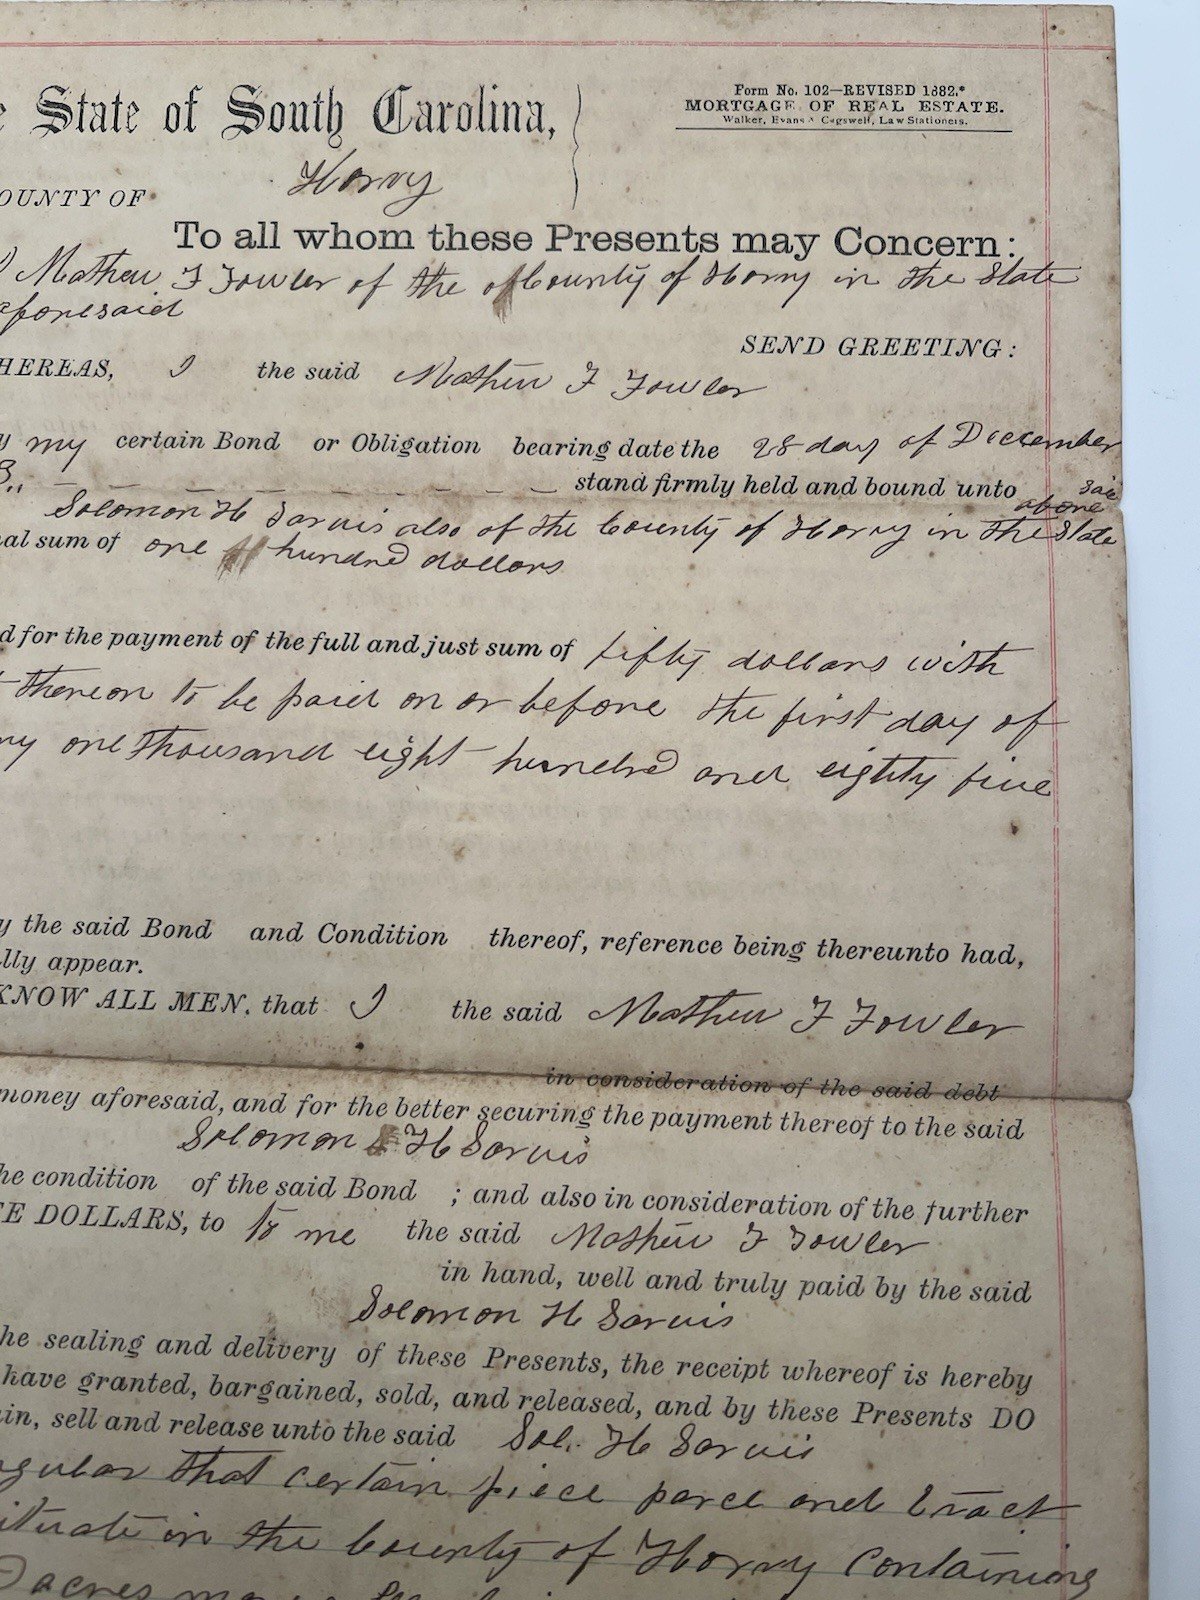 e State of South Carolina,
Form No. 102—REVISED 1882.*
MORTGAGE OF REAL ESTATE.
Walker, Evans & Cogswell, Law Stationers.
OUNTY OF Horry
To all whom these Presents may Concern:
Mathew F Fowler of the County of Horry in the State
aforesaid
SEND GREETING:
HEREAS, I the said Mathew F Fowler
y my certain Bond or Obligation bearing date the 28 day of December
stand firmly held and bound unto
Solomon H Sarvis also of the County of Horry in the above said State
al sum of one hundred dollars
d for the payment of the full and just sum of fifty dollars with
t thereon to be paid on or before the first day of
ry one thousand eight hundred and eighty five
y the said Bond and Condition thereof, reference being thereunto had,
lly appear.
KNOW ALL MEN, that I the said Mathew F Fowler
in consideration of the said debt
money aforesaid, and for the better securing the payment thereof to the said
Solomon H Sarvis
he condition of the said Bond ; and also in consideration of the further
EE DOLLARS, to to me the said Mathew F Fowler
in hand, well and truly paid by the said
Solomon H Sarvis
he sealing and delivery of these Presents, the receipt whereof is hereby
have granted, bargained, sold, and released, and by these Presents DO
ain, sell and release unto the said Sol. H Sarvis
ngular that certain piece parce and tract
ituate in the County of Horry Containing
acres more